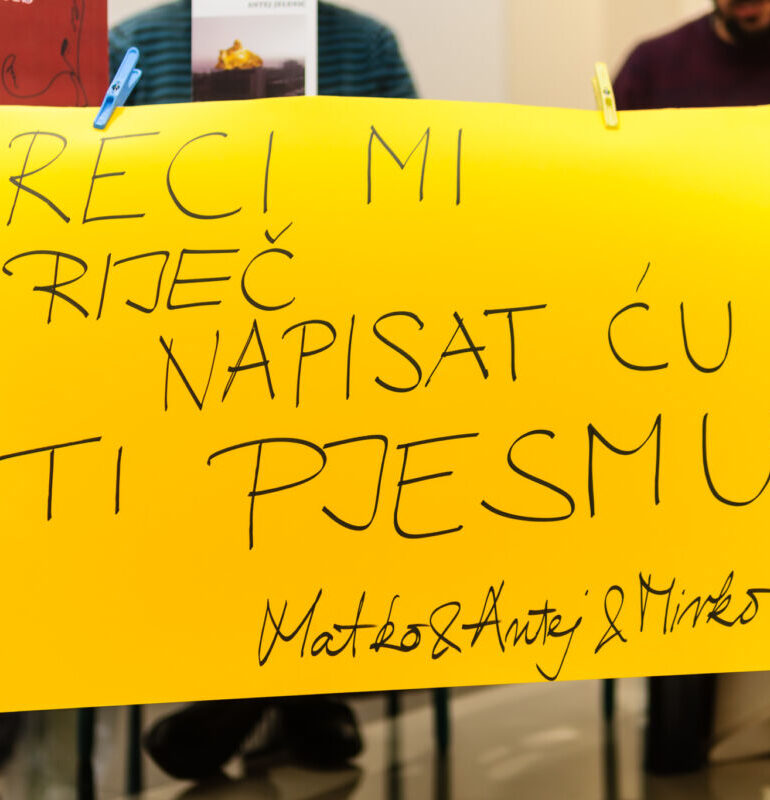 RECI MI
RIJEČ
NAPISAT ĆU
TI PJESMU
Matko & Antej & Mirko